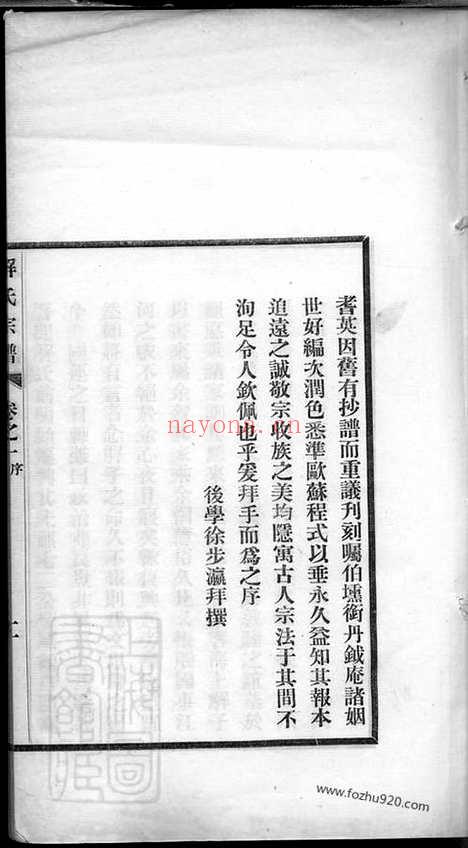 耆英因舊有抄譜而重議刋刻囑伯壎衡丹鉞庵諸姻
世好編次潤色悉準歐蘇程式以垂永久益知其報本
追遠之誠敬宗收族之美均隱寓古人宗法于其間不
洵足令人欽佩也乎爰拜手而爲之序
後學徐步瀛拜撰
氏宗譜
卷之一序
nayong.cn
www.fozhu920.com